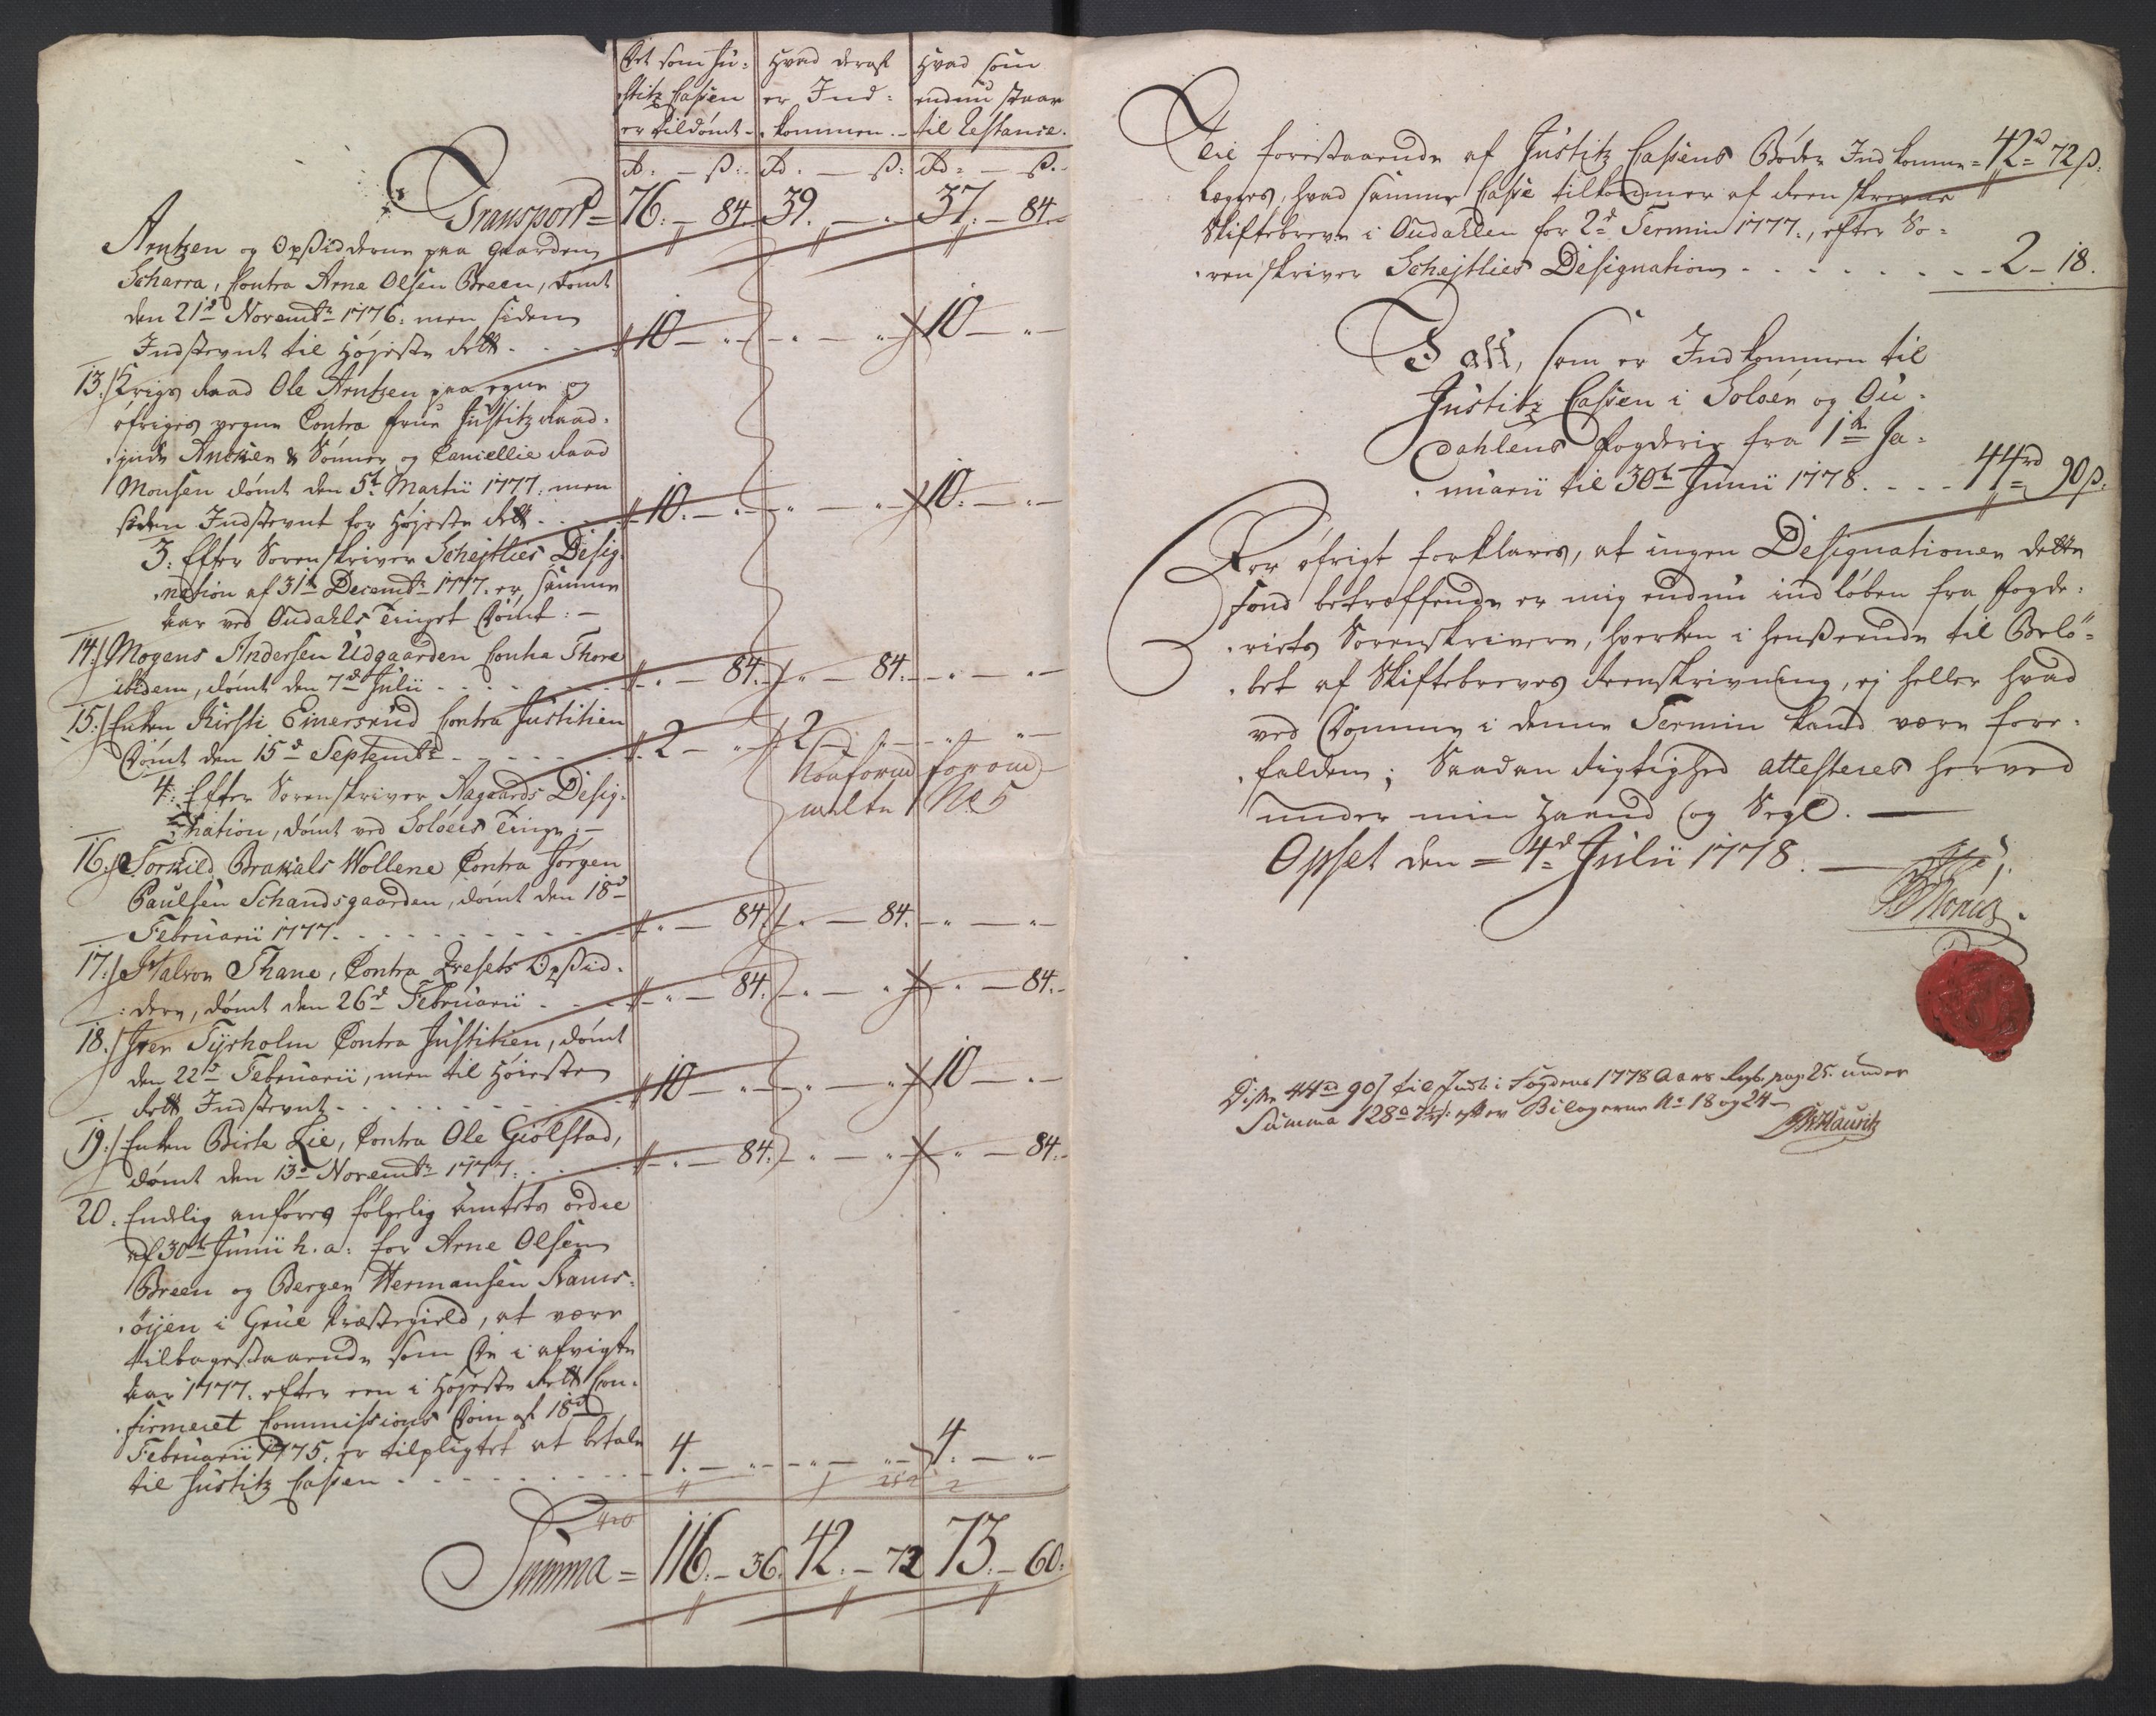 Det som Ju- Hvad deraf Hvad som
stitz Cassen er Ind- endnu staar
er tildömt. kommen. til Restance.
Rd. ß: Rd. ß: Rd: ß.
Transport = 76. 84. 39. " 37. 84.
Arntzen og Opsidderne paa Gaarden
Scharra, Contra Arne Olsen Breen, dömt
den 21de Novembr 1776. men siden
Indstevnt til Höjeste Rett. 10 " " " 10 "
13. Krigs Raad Ole Arntzen paa egne og
öfriges vegne Contra Frue Justitz Raad-
inde Ancken & Sönner og Cancellie Raad
Monsen dömt den 5t Martii 1777. men
siden Indstevnt for Höjeste Rett. 10. " " " 10. "
3. Efter Sorenskriver Schejtlies Desig-
nation af 31te Decembr 1777. er samme
Aar ved Oudahls Tinget Dömt:
14. Mogens Andersen Udgaarden Contra Thore
ibidem, dömt den 7de Julii " 84. " 84. " "
15. Enken Kirsti Einersrud Contra Justitien
Dömt den 15de Septembr 2 " 2 " " "
4. Efter Sorenskriver Aagaards Desig-
nation, dömt ved Soloers Tinge:
16. Torkild Brakals Wollene Contra Jörgen
Paulsen Schandsgaarden, dömt den 18de
Februarii 1777. " 84. " 84. " "
17. Halvor Thane, Contra Opsid-
dere, dömt den 26de Februarii " 84. " " " 84.
18. Iver Tyrholm Contra Justitien, dömt
den 22de Februarii, men til Höieste
Rett Indstevnt. 10 " " " 10 "
19. Enken Birte Lie, Contra Ole Giölstad,
dömt den 13de Novembr 1777. " 84. " " " 84.
20. Endelig anföres fölgelig Amtets ordre
af 30te Junii h. a: for Arne Olsen
Breen og Bergen Hermansen Rams-
öijen i Grue Præstegield, at være
tilbagestaaende som De i afvigte
Aar 1777. efter een i Höjeste Rett Con-
firmeret Commissions Dom af 18de
Februarii 1775. er tilpligtet at betale
til Justitz Cassen 4. " " " 4. "
Summa = 116. 36. 42. 72 73. 60.
Til forestaaende af Justitz Cassens Böder Indkomne = 42rd 72ß.
lægges, hvad samme Casse tilkommer af Reenskrevne
Skiftebreve i Oudahlen for 2de Termin 1777., efter So-
renskriver Schejtlies Designation 2 18.
I alt, som er Indkommen til
Justitz Cassen i Soloer og Ou-
dahlens Fogderie fra 1te Ja-
nuarii til 30te Junii 1778. 44rd 90ß.
For öfrigt forklares, at ingen Designationer dette
Fond betreffende er mig endnu indlöben fra Fogde-
riets Sorenskrivere, hverken i henseende til Belö-
bet af Skiftebreves Reenskrivning, ej heller hvad
ved Domme i denne Termin kand være fore-
falden; Saadan Rigtighed attesteres herved
under min Haand og Segl.
Opset den 4de Julii 1778.
Disse 44rd 90ß til Indt: i Fogdens 1778 Aars Regb. pag. 25. under
Summa 128rd efter Bilagerne No 18 og 24